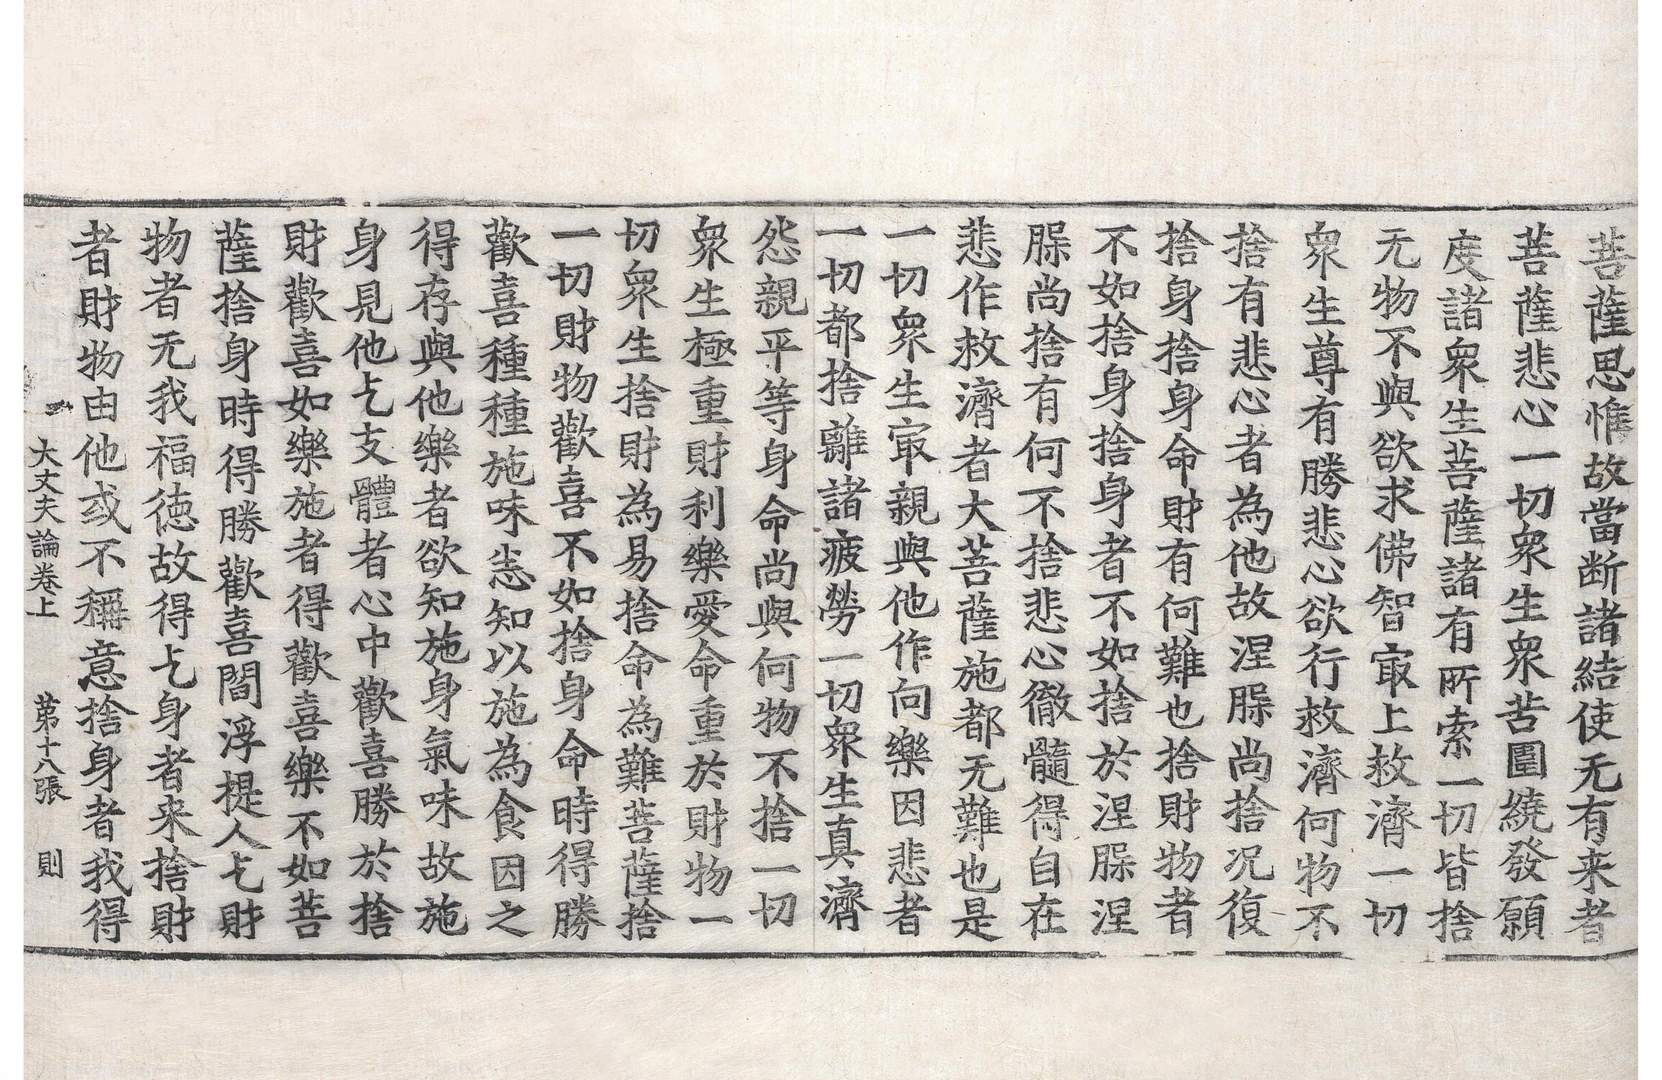 菩薩思惟故當断諸結使无有来者
菩薩悲心一切衆生衆苦圍繞發願
度諸衆生菩薩諸有所索一切皆捨
无物不與欲求佛智㝡上救濟一切
衆生尊有勝悲心欲行救濟何物不
捨有悲心者為他故涅䐬尚捨况復
捨身捨身命財有何難也捨財物者
不如捨身捨身者不如捨於涅䐬涅
䐬尚捨有何不捨悲心徹髓得自在
悲作救濟者大菩薩施都无難也是
一切衆生㝡親與他作向樂因悲者
一切都捨離諸疲勞一切衆生真濟
怨親平等身命尚與何物不捨一切
衆生極重財利樂愛命重於財物一
切衆生捨財為易捨命為難菩薩捨
一切財物歡喜不如捨身命時得勝
歡喜種種施味恙知以施為食因之
得存與他樂者欲知施身氣味故施
身見他乞支體者心中歡喜勝於捨
財歡喜如樂施者得歡喜樂不如菩
薩捨身時得勝歡喜閻浮提人乞財
物者无我福徳故得乞身者来捨財
者財物由他或不稱意捨身者我得
大丈夫論卷上 第十八張 則